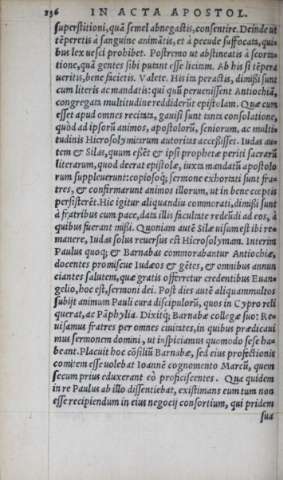 236 IN ACTA APOSTOL.
superstitioni, quã semel abnegastis, consentire. Deinde ut
tẽperetis à sanguine animãtis, et à pecude suffocata, quibus
lex vesci prohibet. Postremo ut abstineatis à scortatione,
quã gentes sibi putant esse licitam. Ab his si tẽperaueritis,
bene facietis. Valete. His in peractis, dimißi sunt
cum literis ac mandatis: qui quũ peruenissent Antiochiã,
congregata multitudine reddiderũt epistolam. Quæ cum
esset apud omnes recitata, gauisi sunt tanta consolatione,
quòd ad ipsorũ animos, apostolorũ, seniorum, ac multitudinis
Hierosolymitarum autoritas accessisset. Iudas autem
et Silas, quum essẽt et ipsi prophetæ periti sacrarũ
literarum, quod deerat epistolæ, iuxta mandatũ apostolorum
suppleuerunt: copiosoq; sermone exhortati sunt fratres,
et confirmarunt animos illorum, ut in bene cœptis
persisterẽt. Hic igitur aliquandiu commorati, dimißi sunt
à fratribus cum pace, data illis facultate redeũdi ad eos, à
quibus fuerant mißi. Quoniam autẽ Silæ visum est ibi remanere,
Iudas solus reuersus est Hierosolymam. Interim
Paulus quoq; et Barnabas commorabantur Antiochiæ,
docentes promiscue Iudæos et gẽtes, et omnibus annunciantes
salutem, quæ gratis offerretur credentibus Euangelio,
hoc est, sermoni dei. Post dies autẽ aliquammultos
subijt animum Pauli cura discipulorũ, quos in Cypro reliquerat,
ac Pãphylia. Dixitq; Barnabæ collegæ suo: Reuisamus
fratres per omnes ciuitates, in quibus prædicauimus
sermonem domini, ut inspiciamus quomodo sese habeant.
Placuit hoc cõsiliũ Barnabæ, sed eius profectionis
comitem esse uolebat Ioannẽ cognomento Marcũ, quem
secum prius eduxerant eò proficiscentes. Qua quidem
in re Paulus ab illo dissentiebat, existimans eum tum non
esse recipiendum in eius negocij consortium, qui pridem
sua